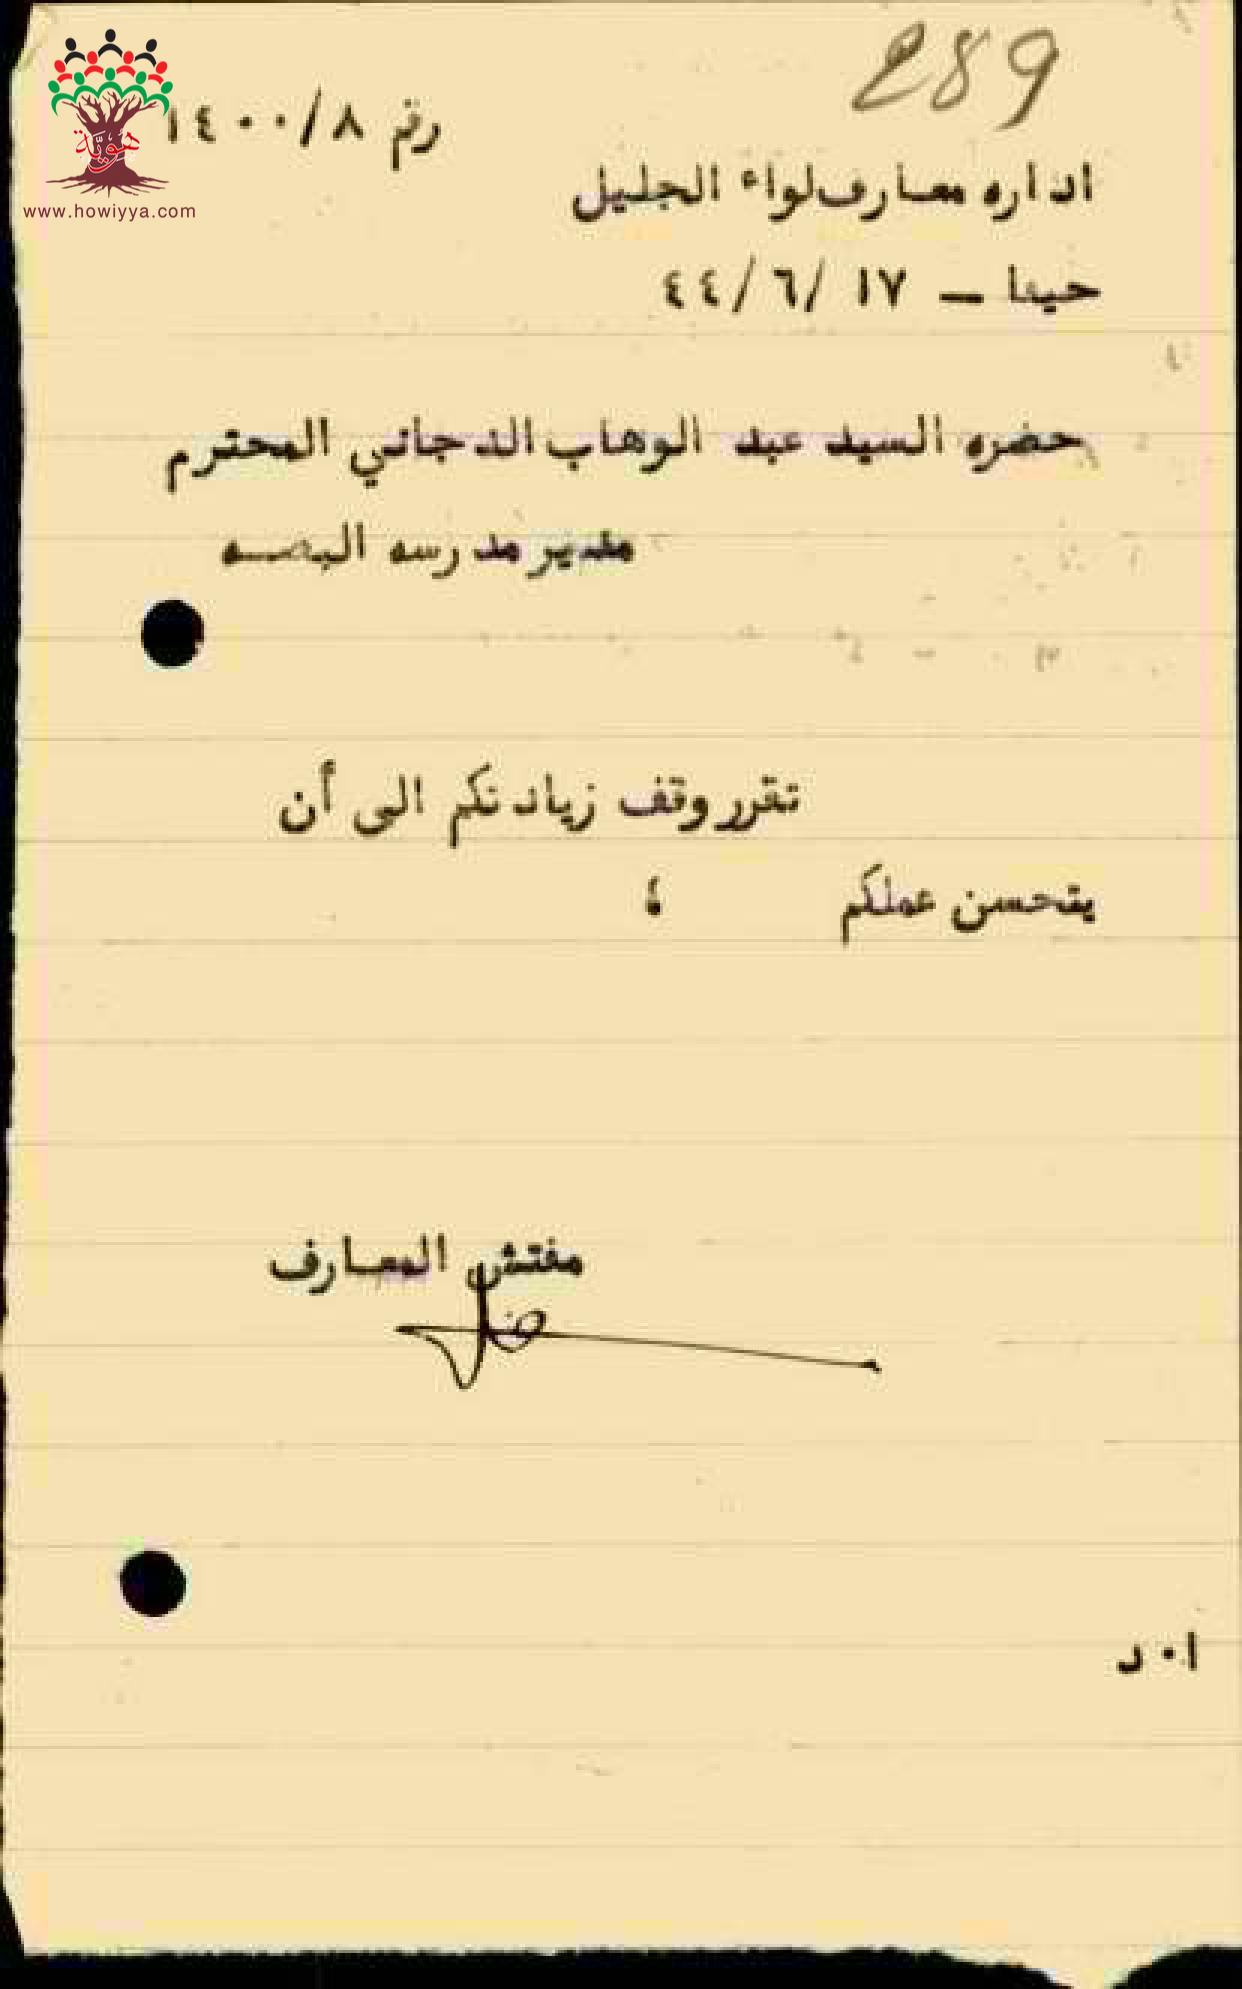 289
رقم ١٤٠٠/٨
هويّة
www.howiyya.com
اداره معارف لواء الجليل
حيفا — ١٧ /٦/ ٤٤
حضره السيد عبد الوهاب الدجاني المحترم
مدير مدرسه البصه
تقرر وقف زيادتكم الى أن
يتحسن عملكم ؛
مفتش المعارف
ا٠ د